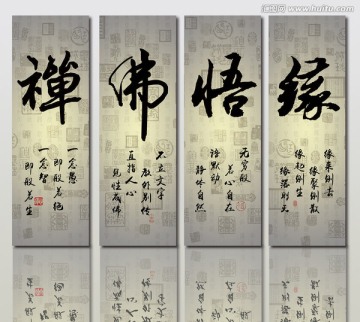 www.huitu.com
禪
一念愚
即般若绝
一念智
即般若生
佛
不立文字
教外别传
直指人心
见性成佛
悟
无穷般
若心自在
语默动
静体自然
缘
缘来则去
缘聚则散
缘起则生
缘落则灭